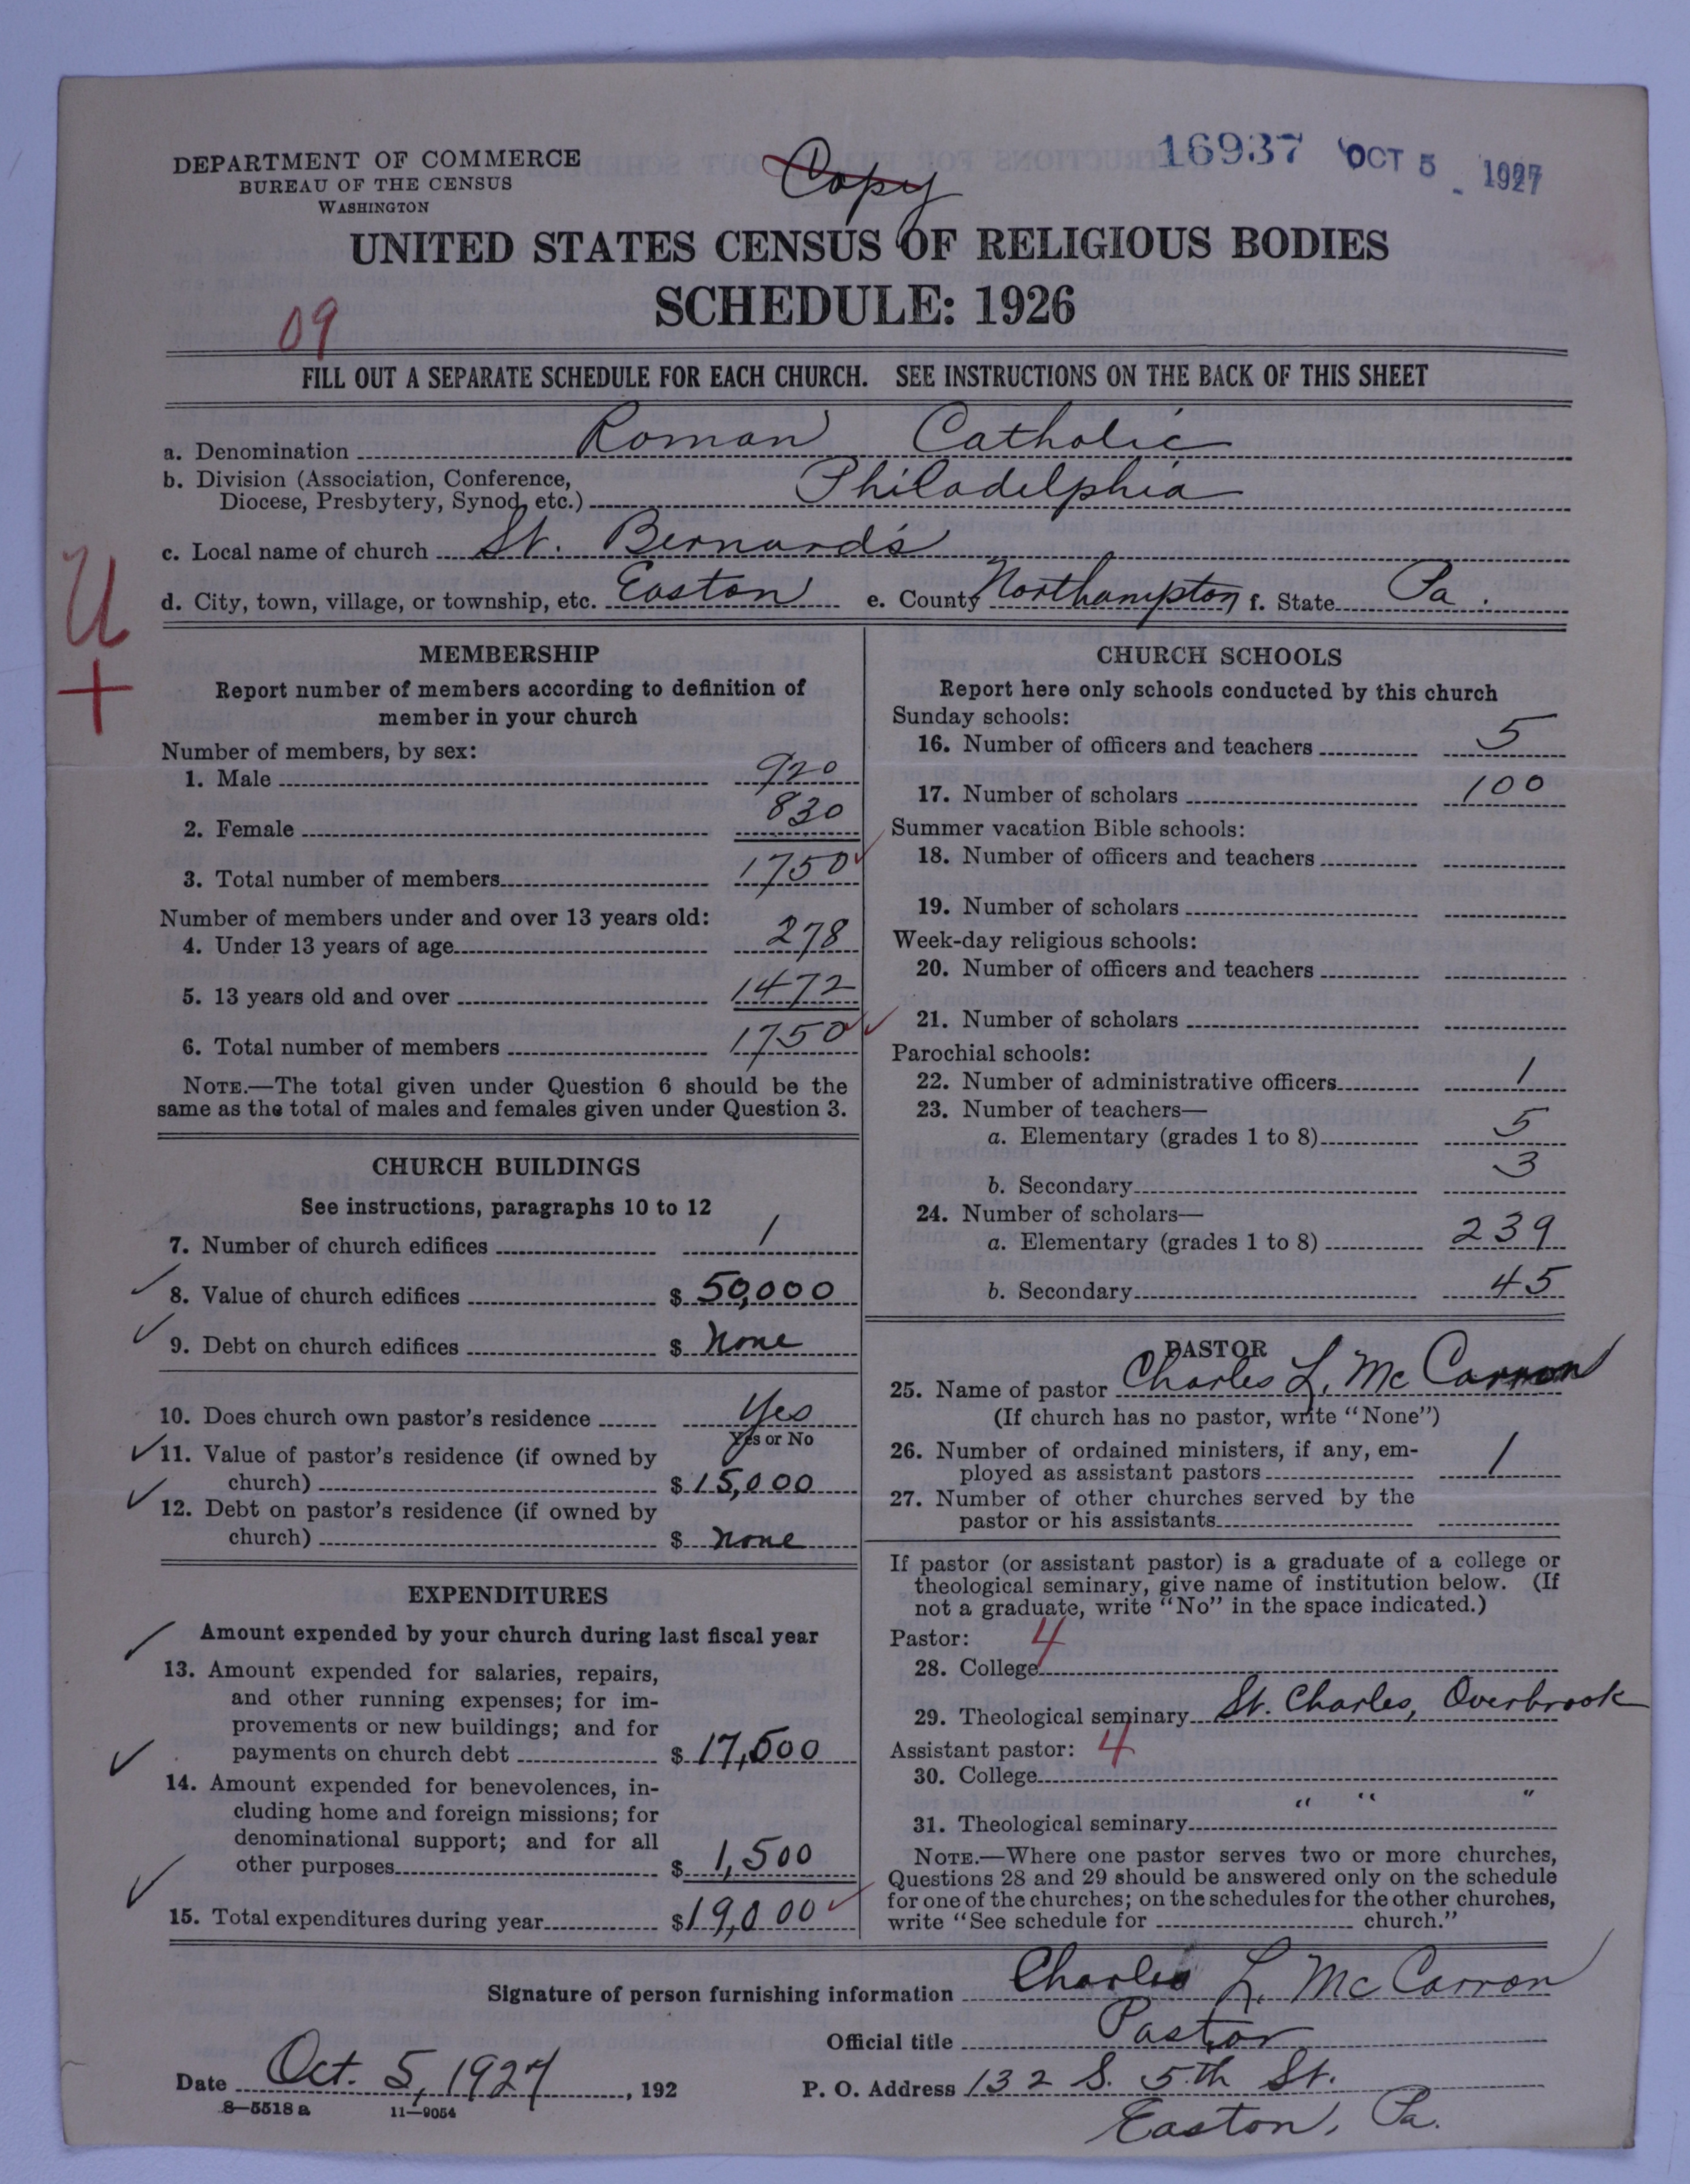 DEPARTMENT OF COMMERCE
BUREAU OF THE CENSUS
WASHINGTON
Copy
16937 OCT 5 1927
UNITED STATES CENSUS OF RELIGIOUS BODIES
SCHEDULE: 1926
09
FILL OUT A SEPARATE SCHEDULE FOR EACH CHURCH. SEE INSTRUCTIONS ON THE BACK OF THIS SHEET
a. Denomination Roman Catholic
b. Division (Association, Conference,
Diocese, Presbytery, Synod, etc.) Philadelphia
c. Local name of church St. Bernard's
d. City, town, village, or township, etc. Easton e. County Northampton f. State Pa.
U
+
MEMBERSHIP
Report number of members according to definition of
member in your church
Number of members, by sex:
1. Male 920
2. Female 830
3. Total number of members 1750
Number of members under and over 13 years old:
4. Under 13 years of age 278
5. 13 years old and over 1472
6. Total number of members 1750
NOTE.—The total given under Question 6 should be the
same as the total of males and females given under Question 3.
CHURCH BUILDINGS
See instructions, paragraphs 10 to 12
7. Number of church edifices 1
8. Value of church edifices $ 50,000
9. Debt on church edifices $ none
10. Does church own pastor's residence Yes
Yes or No
11. Value of pastor's residence (if owned by
church) $ 15,000
12. Debt on pastor's residence (if owned by
church) $ none
EXPENDITURES
Amount expended by your church during last fiscal year
13. Amount expended for salaries, repairs,
and other running expenses; for im-
provements or new buildings; and for
payments on church debt $ 17,500
14. Amount expended for benevolences, in-
cluding home and foreign missions; for
denominational support; and for all
other purposes $ 1,500
15. Total expenditures during year $ 19,000
CHURCH SCHOOLS
Report here only schools conducted by this church
Sunday schools:
16. Number of officers and teachers 5
17. Number of scholars 100
Summer vacation Bible schools:
18. Number of officers and teachers
19. Number of scholars
Week-day religious schools:
20. Number of officers and teachers
21. Number of scholars
Parochial schools:
22. Number of administrative officers 1
23. Number of teachers—
a. Elementary (grades 1 to 8) 5
b. Secondary 3
24. Number of scholars—
a. Elementary (grades 1 to 8) 239
b. Secondary 45
PASTOR
25. Name of pastor Charles L. McCarron
(If church has no pastor, write "None")
26. Number of ordained ministers, if any, em-
ployed as assistant pastors 1
27. Number of other churches served by the
pastor or his assistants
If pastor (or assistant pastor) is a graduate of a college or
theological seminary, give name of institution below. (If
not a graduate, write "No" in the space indicated.)
Pastor: 4
28. College
29. Theological seminary St. Charles, Overbrook
Assistant pastor: 4
30. College
31. Theological seminary " " "
NOTE.—Where one pastor serves two or more churches,
Questions 28 and 29 should be answered only on the schedule
for one of the churches; on the schedules for the other churches,
write "See schedule for church."
Signature of person furnishing information Charles L. McCarron
Official title Pastor
Date Oct. 5, 1927, 192 P. O. Address 132 S. 5th St.
Easton, Pa.
8—5518 a 11—9054